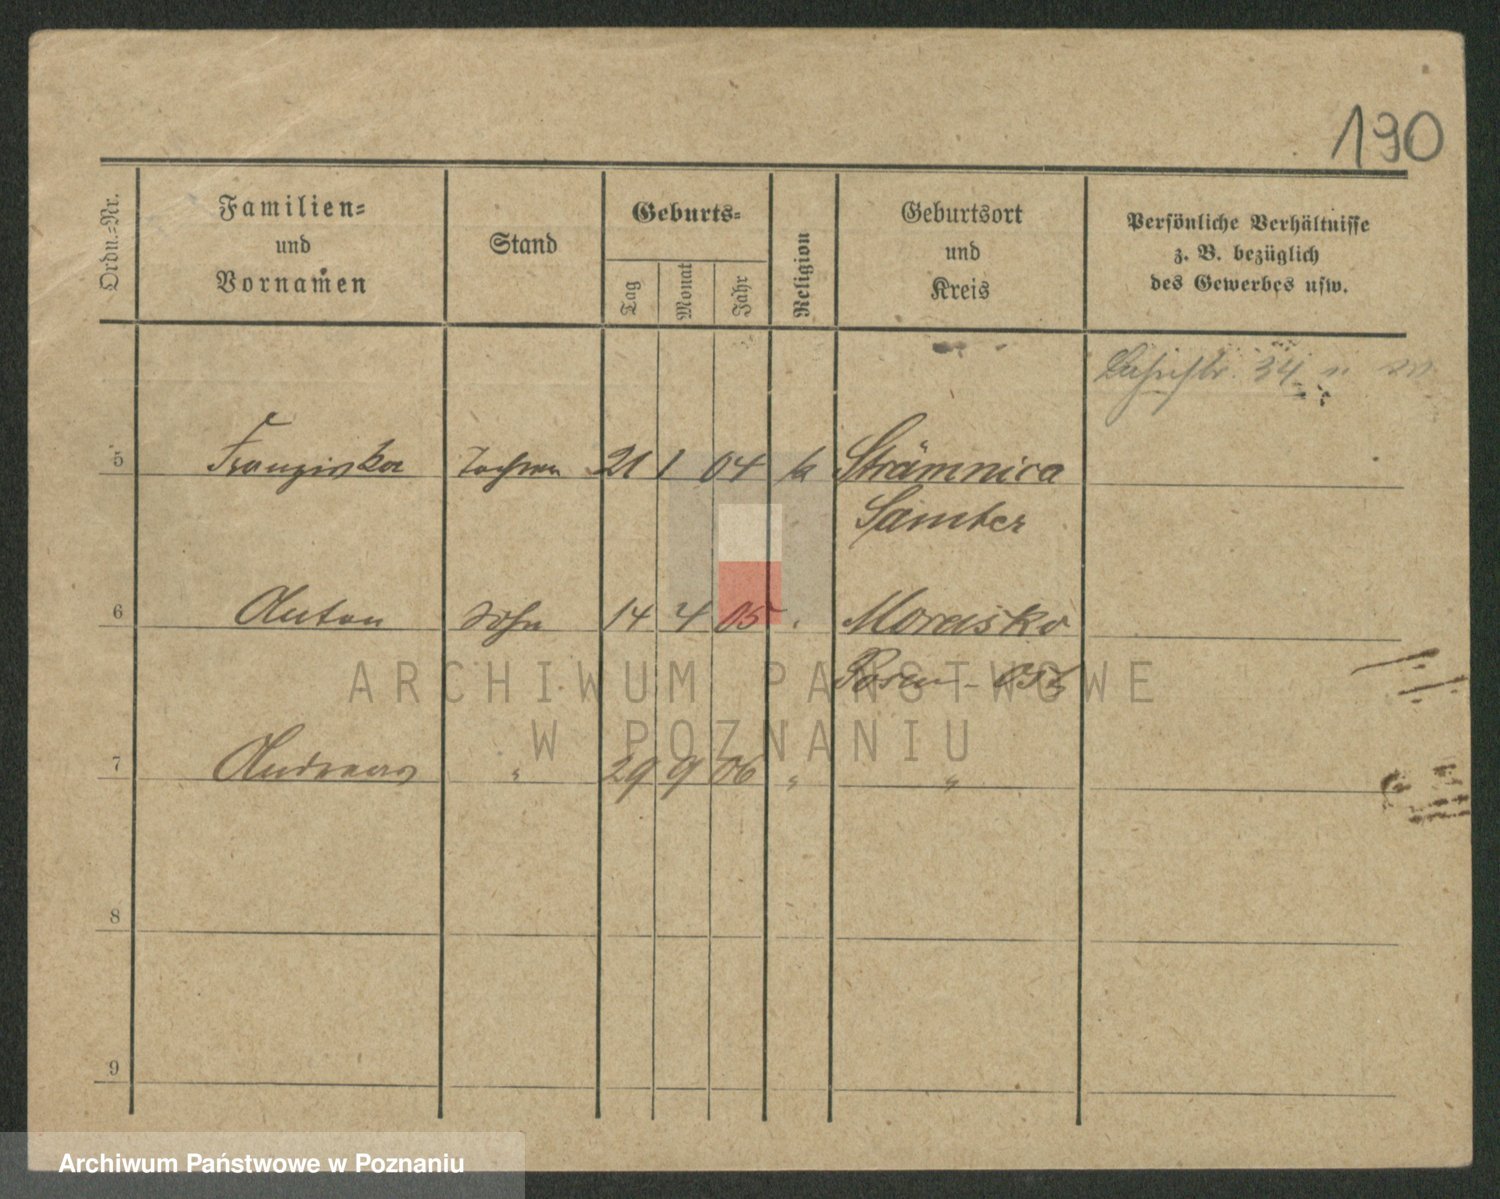 190
Ordn.=Nr.
Familien=
und
Vornamen
Stand
Geburts=
Tag
Monat
Jahr
Religion
Geburtsort
und
Kreis
Persönliche Verhältnisse
z. B. bezüglich
des Gewerbes usw.
34
5 Franziska Tochter 21 1 04 k Strämnica
Samter
6 Anton Sohn 14 4 05 " Morasko
Posen-Ost
7 Andreas " 29 9 06 " "
8
9
ARCHIWUM PAŃSTWOWE
W POZNANIU
Archiwum Państwowe w Poznaniu